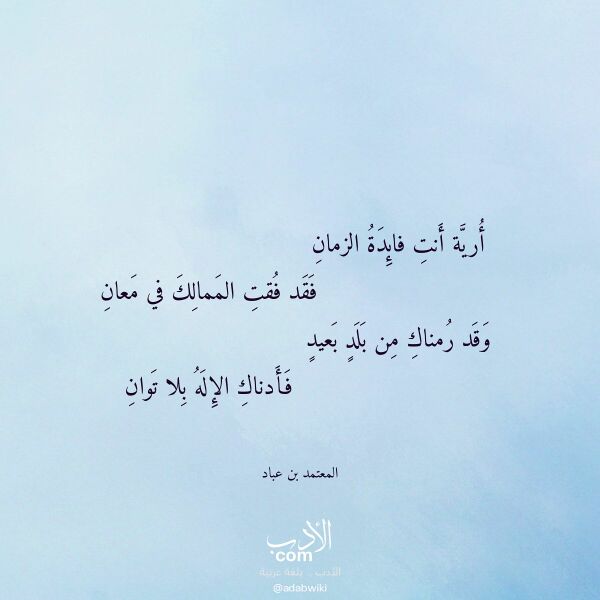 أُريَّة أَنتِ فايِدَةُ الزمانِ
فَقَد فُقتِ المَمالِكَ في مَعانِ
وَقَد رُمناكِ مِن بَلَدٍ بَعيدٍ
فَأَدناكِ الإِلَهُ بِلا تَوانِ
المعتمد بن عباد
الأدب
com
الأدب .. بلغة عربية
@adabwiki